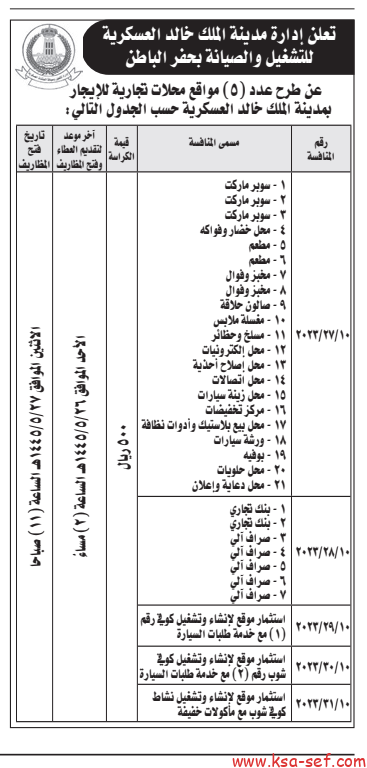 تعلن إدارة مدينة الملك خالد العسكرية
للتشغيل والصيانة بحفر الباطن
عن طرح عدد (٥) مواقع محلات تجارية للإيجار
بمدينة الملك خالد العسكرية حسب الجدول التالي:
رقم المنافسة
مسمى المنافسة
قيمة الكراسة
آخر موعد لتقديم العطاء وفتح المظاريف
تاريخ فتح المظاريف
٢٠٢٣/٢٧/١٠
١ - سوبر ماركت
٢ - سوبر ماركت
٣ - سوبر ماركت
٤ - محل خضار وفواكه
٥ - مطعم
٦ - مطعم
٧ - مخبز وفوال
٨ - مخبز وفوال
٩ - صالون حلاقة
١٠ - مغسلة ملابس
١١ - مسلخ وحظائر
١٢ - محل إلكترونيات
١٣ - محل إصلاح أحذية
١٤ - محل اتصالات
١٥ - محل زينة سيارات
١٦ - مركز تخفيضات
١٧ - محل بيع بلاستيك وأدوات نظافة
١٨ - ورشة سيارات
١٩ - بوفيه
٢٠ - محل حلويات
٢١ - محل دعاية وإعلان
٢٠٢٣/٢٨/١٠
١ - بنك تجاري
٢ - بنك تجاري
٣ - صراف آلي
٤ - صراف آلي
٥ - صراف آلي
٦ - صراف آلي
٧ - صراف آلي
٢٠٢٣/٢٩/١٠
استثمار موقع لإنشاء وتشغيل كوفي رقم
(١) مع خدمة طلبات السيارة
٢٠٢٣/٣٠/١٠
استثمار موقع لإنشاء وتشغيل كوفي
شوب رقم (٢) مع خدمة طلبات السيارة
٢٠٢٣/٣١/١٠
استثمار موقع لإنشاء وتشغيل نشاط
كوفي شوب مع مأكولات خفيفة
٥٠٠ ريال
الأحد الموافق ١٤٤٥/٥/٢٦هـ الساعة (٢) مساء
الاثنين الموافق ١٤٤٥/٥/٢٧هـ الساعة (١١) صباحا
www.ksa-sef.com